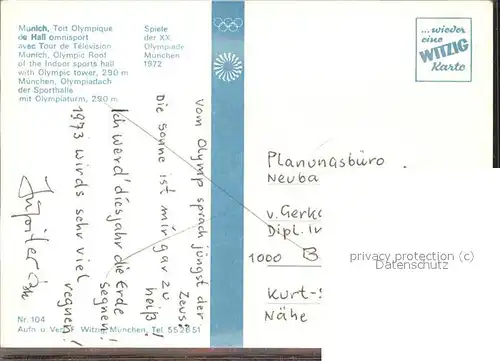 Munich, Toit Olympique
de Hall omnisport
avec Tour de Télévision
Munich, Olympic Roof
of the Indoor sports hall
with Olympic tower, 290 m
München, Olympiadach
der Sporthalle
mit Olympiaturm, 290 m
Spiele
der XX.
Olympiade
München
1972
...wieder
eine
WITZIG
Karte
Vom Olymp sprach jüngst der
Zeus:
Die Sonne ist mir gar zu
heiß!
Ich werd' diesjahr die Erde
segnen!
1973 wirds sehr viel
regnen!
Jupiter
Planungsbüro
Neuba
v. Gerka
Dipl. In
1000 B
Kurt-S
Nähe
privacy protection (c)
Nr. 104
Aufn. u. Verl. F. Witzig, München, Tel. 552651